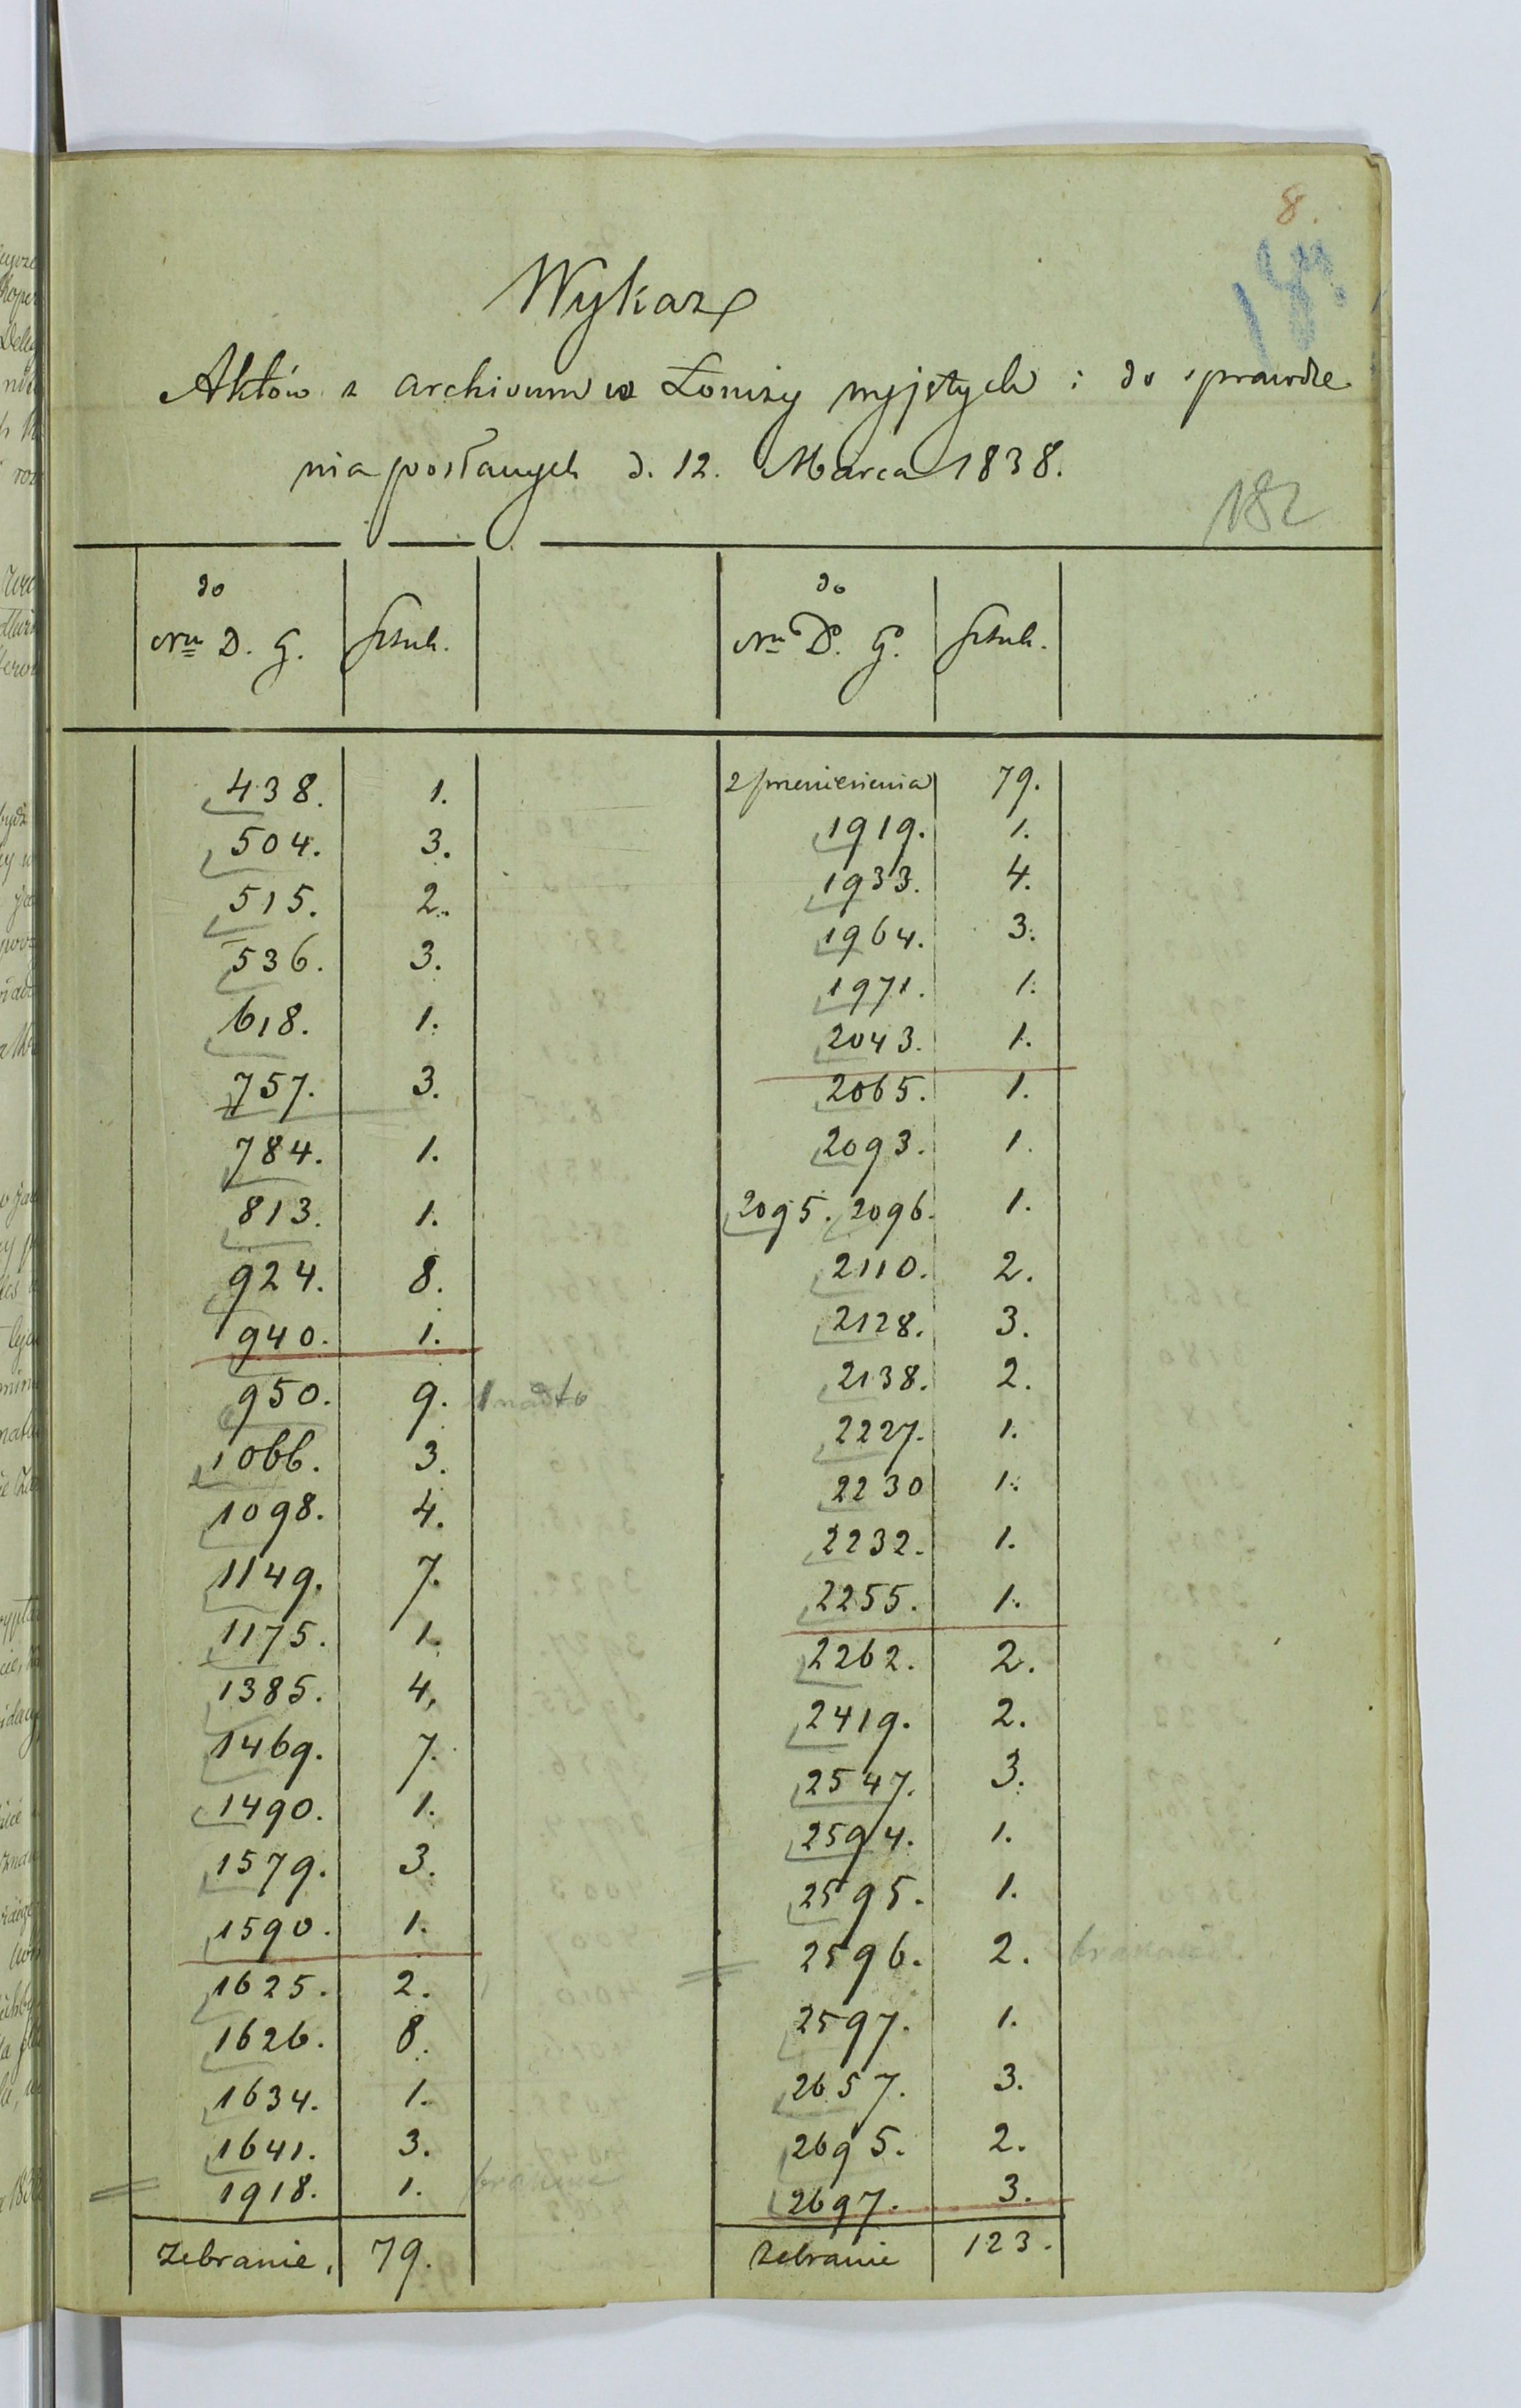 8.
182
Wykaz
Aktów z archivum w Łomży wyjętych i do sprawdze
nia posłanych d. 12. Marca 1838.
182
do
Nru D. G. Sztuk.
do
Nru D. G. Sztuk.
438. 1.
504. 3.
515. 2.
536. 3.
618. 1.
757. 3.
784. 1.
813. 1.
924. 8.
940. 1.
950. 9. 1 nadto
1066. 3.
1098. 4.
1149. 7.
1175. 1.
1385. 4.
1469. 7.
1490. 1.
1579. 3.
1590. 1.
1625. 2.
1626. 8.
1634. 1.
1641. 3.
1918. 1.
Zebranie. 79.
z przeniesienia 79.
1919. 1.
1933. 4.
1964. 3.
1971. 1.
2043. 1.
2065. 1.
2093. 1.
2095. 2096. 1.
2110. 2.
2128. 3.
2138. 2.
2227. 1.
2230 1.
2232. 1.
2255. 1.
2262. 2.
2419. 2.
2547. 3.
2594. 1.
2595. 1.
2596. 2.
2597. 1.
2657. 3.
2695. 2.
2697. 3.
Zebranie 123.